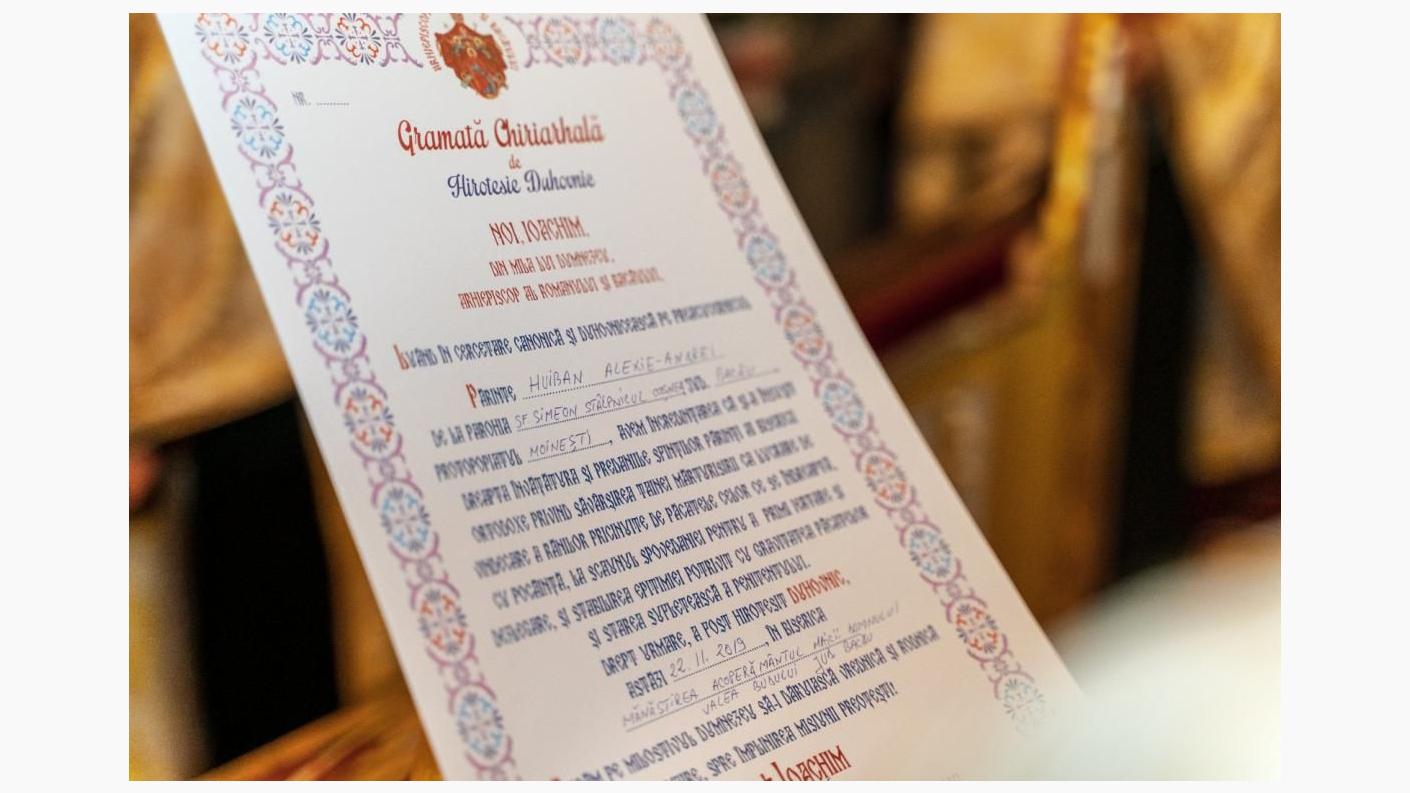 NR. ..........
Gramată Chiriarhală
de
Hirotesie Duhovnic
NOI, IOACHIM,
DIN MILA LUI DUMNEZEU,
ARHIEPISCOP AL ROMANULUI ȘI BACĂULUI,
LUÂND ÎN CERCETARE CANONICĂ ȘI DUHOVNICEASCĂ PE PREACUCERNICUL
PĂRINTE HUIBAN ALEXIE-ANDREI
DE LA PAROHIA SF SIMEON STÂLPNICUL JUD. BACĂU
PROTOPOPIATUL MOINEȘTI, AVEM ÎNCREDINȚAREA CĂ ȘI-A ÎNSUȘIT
DREAPTA ÎNVĂȚĂTURĂ ȘI PREDANIILE SFINȚILOR PĂRINȚI AI BISERICII
ORTODOXE PRIVIND SĂVÂRȘIREA TAINEI MĂRTURISIRII CA LUCRARE DE
VINDECARE A RĂNILOR PRICINUITE DE PĂCATELE CELOR CE SE ÎNDREAPTĂ,
CU POCĂINȚĂ, LA SCAUNUL SPOVEDANIEI PENTRU A PRIMI IERTARE ȘI
DEZLEGARE, ȘI STABILIREA EPITIMIEI POTRIVIT CU GRAVITATEA PĂCATELOR
ȘI STAREA SUFLETEASCĂ A PENITENTULUI.
DREPT URMARE, A FOST HIROTESIT DUHOVNIC,
ASTĂZI 22.11.2019, ÎN BISERICA
MĂNĂSTIREA ACOPERĂMÂNTUL MAICII DOMNULUI
VALEA BUDULUI JUD BACĂU
PE MILOSTIVUL DUMNEZEU SĂ-I DĂRUIASCĂ VREDNICĂ ȘI RODNICĂ
SPRE ÎMPLINIREA MISIUNII PREOȚEȘTI!
IOACHIM